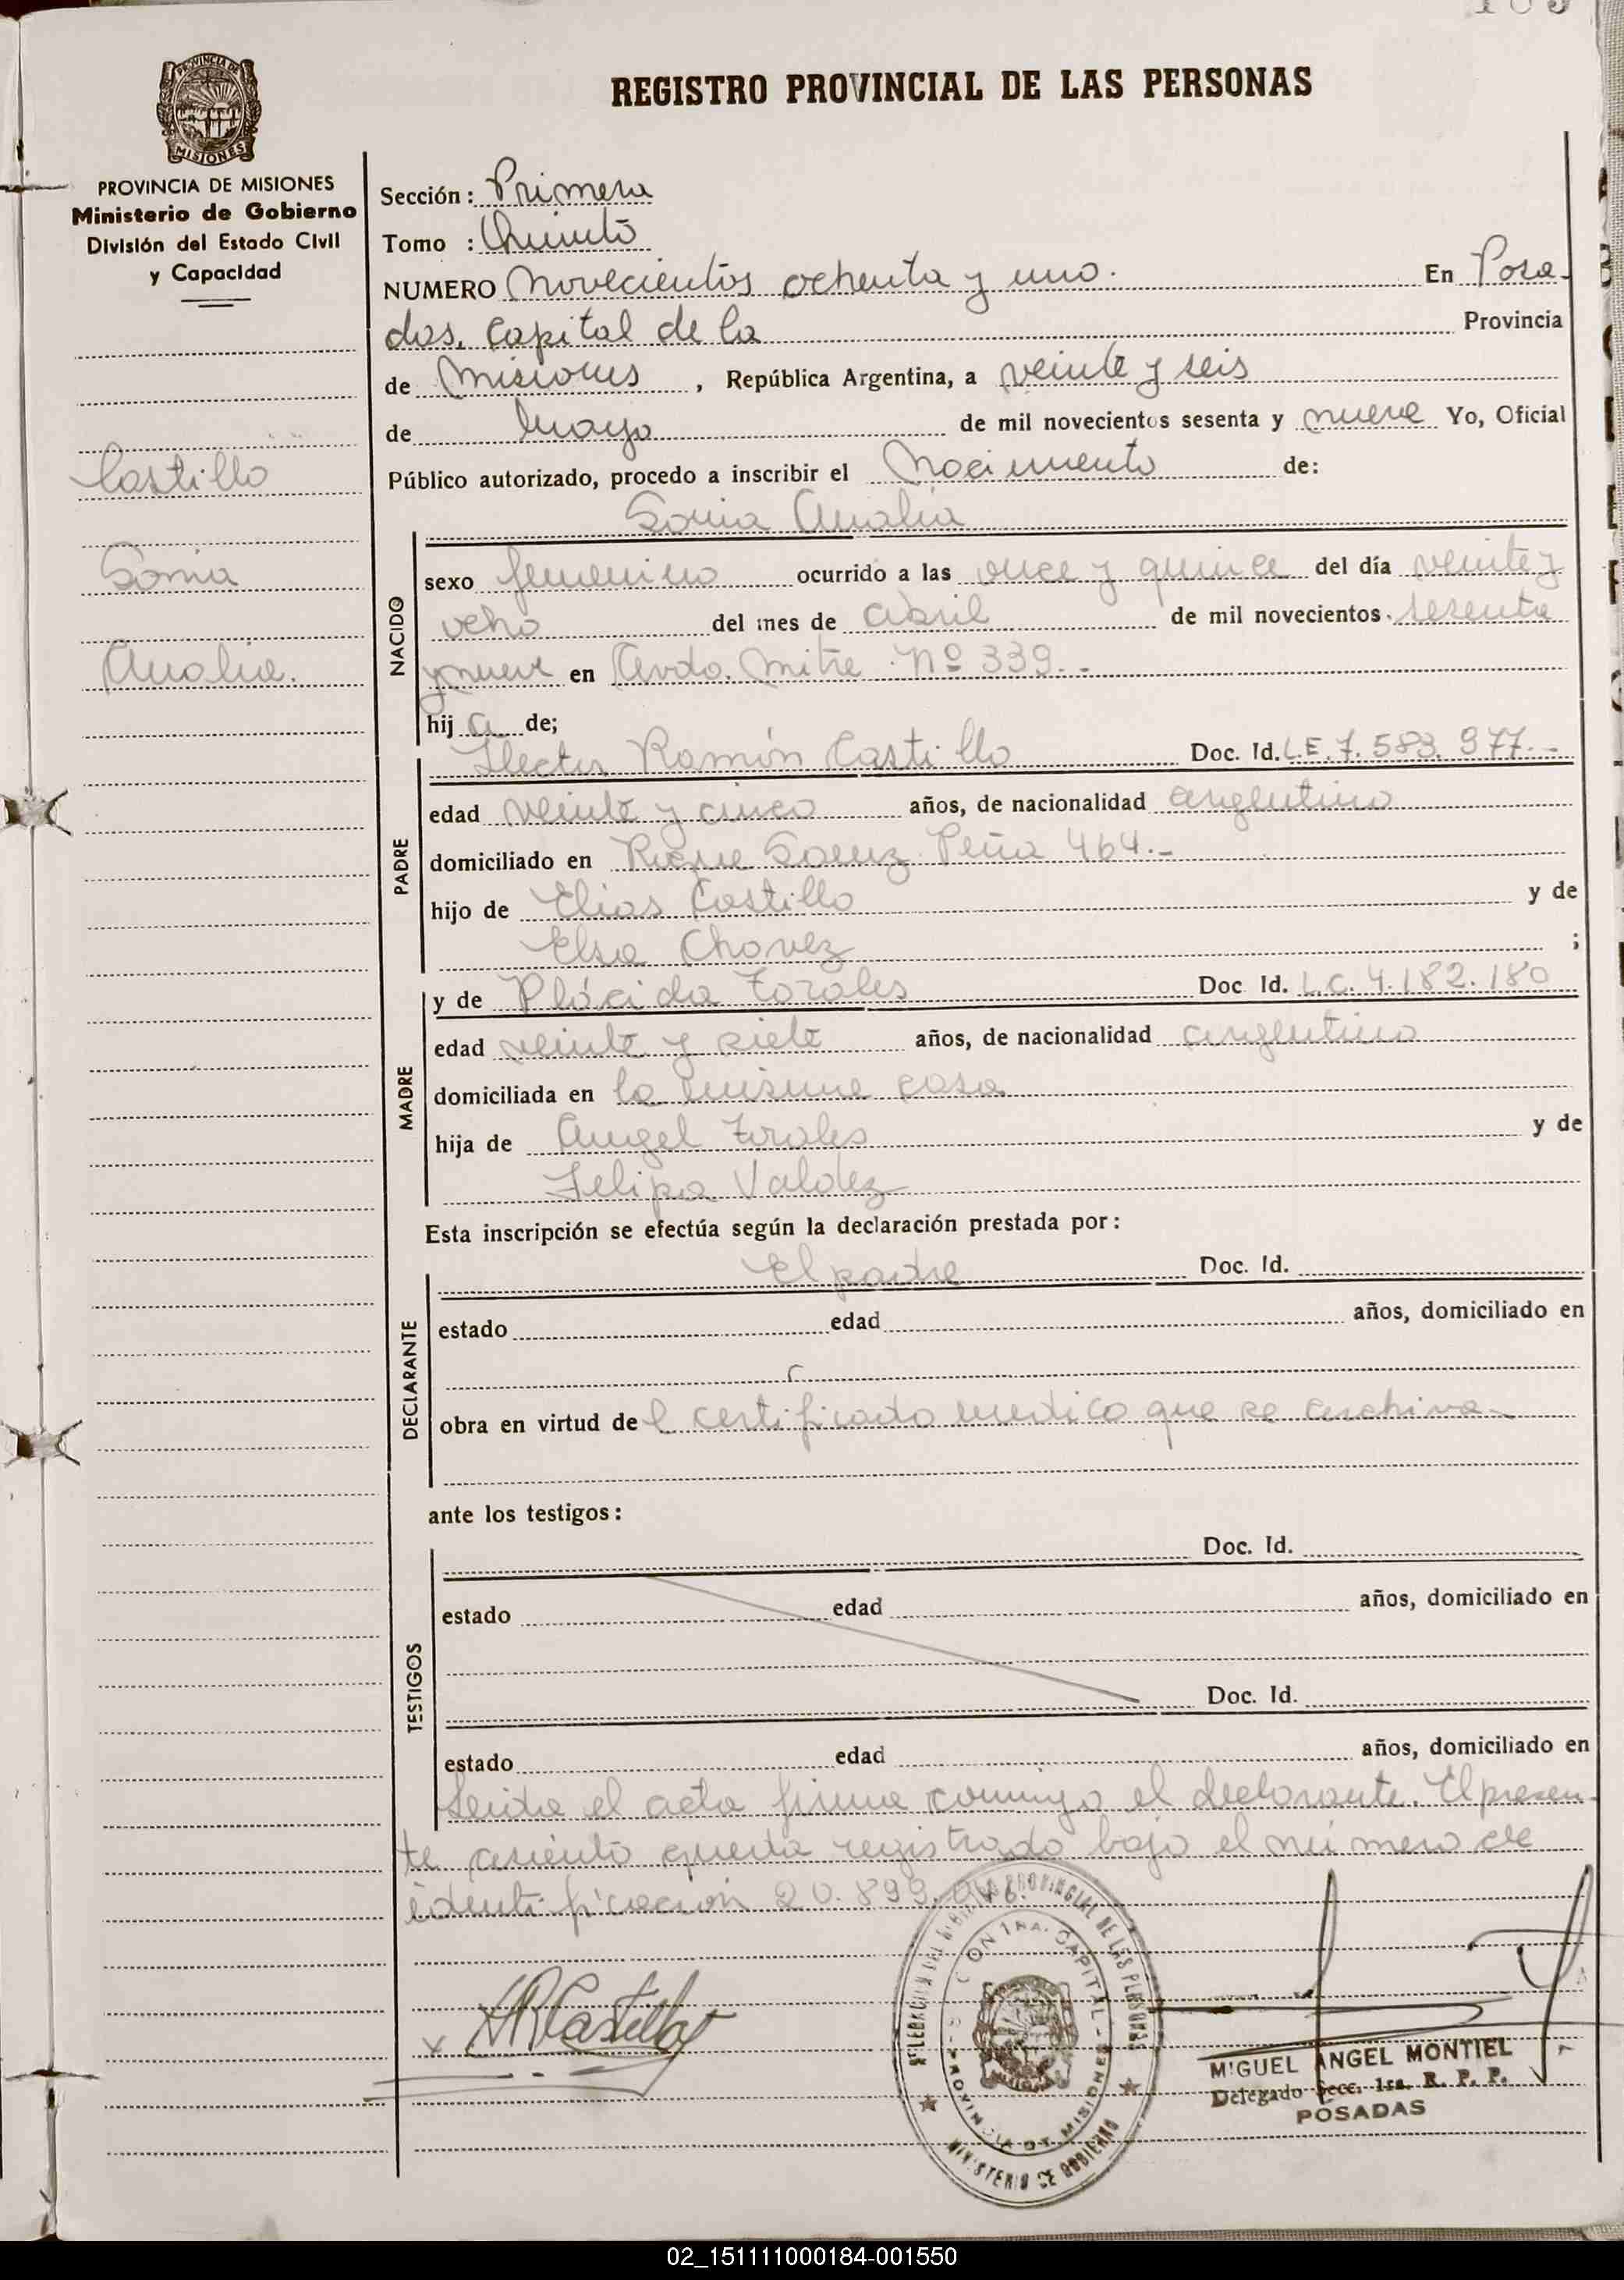 REGISTRO PROVINCIAL DE LAS PERSONAS
PROVINCIA DE
MISIONES
PROVINCIA DE MISIONES
Ministerio de Gobierno
División del Estado Civil
y Capacidad
Castillo
Sonia
Analia.
Sección: Primera
Tomo : Quinto
NUMERO Novecientos ochenta y uno. En Posa-
das, Capital de la Provincia
de Misiones, República Argentina, a veinte y seis
de Mayo de mil novecientos sesenta y nueve Yo, Oficial
Público autorizado, procedo a inscribir el Nacimiento de:
Sonia Analia
NACIDO
sexo femenino ocurrido a las once y quince del día veinte y
ocho del mes de abril de mil novecientos sesenta
y nueve en Avda. Mitre Nº 339.-
hij a de;
PADRE
Hector Ramón Castillo Doc. Id. L.E. 7.583.977.-
edad veinte y cinco años, de nacionalidad argentino
domiciliado en Roque Saenz Peña 464.-
hijo de Elias Castillo y de
Elsa Chavez ;
MADRE
y de Plácida Torales Doc Id. L.C. 4.182.180
edad veinte y siete años, de nacionalidad argentina
domiciliada en la misma casa
hija de Angel Torales y de
Felipa Valdez
Esta inscripción se efectúa según la declaración prestada por:
DECLARANTE
El padre Doc. Id.
estado edad años, domiciliado en
obra en virtud de l certificado medico que se archiva-
ante los testigos:
TESTIGOS
Doc. Id.
estado edad años, domiciliado en
Doc. Id.
estado edad años, domiciliado en
Leida el acta firma conmigo el declarante. El presen-
te asiento queda registrado bajo el número de
identificación 20.899.046.
HRCastillo
PROVINCIAL DE LAS PERSONAS
1RA. CAPITAL
PROVINCIA DE MISIONES
MINISTERIO DE GOBIERNO
MIGUEL ANGEL MONTIEL
Delegado Secc. 1ra. R. P. P.
POSADAS
02_151111000184-001550